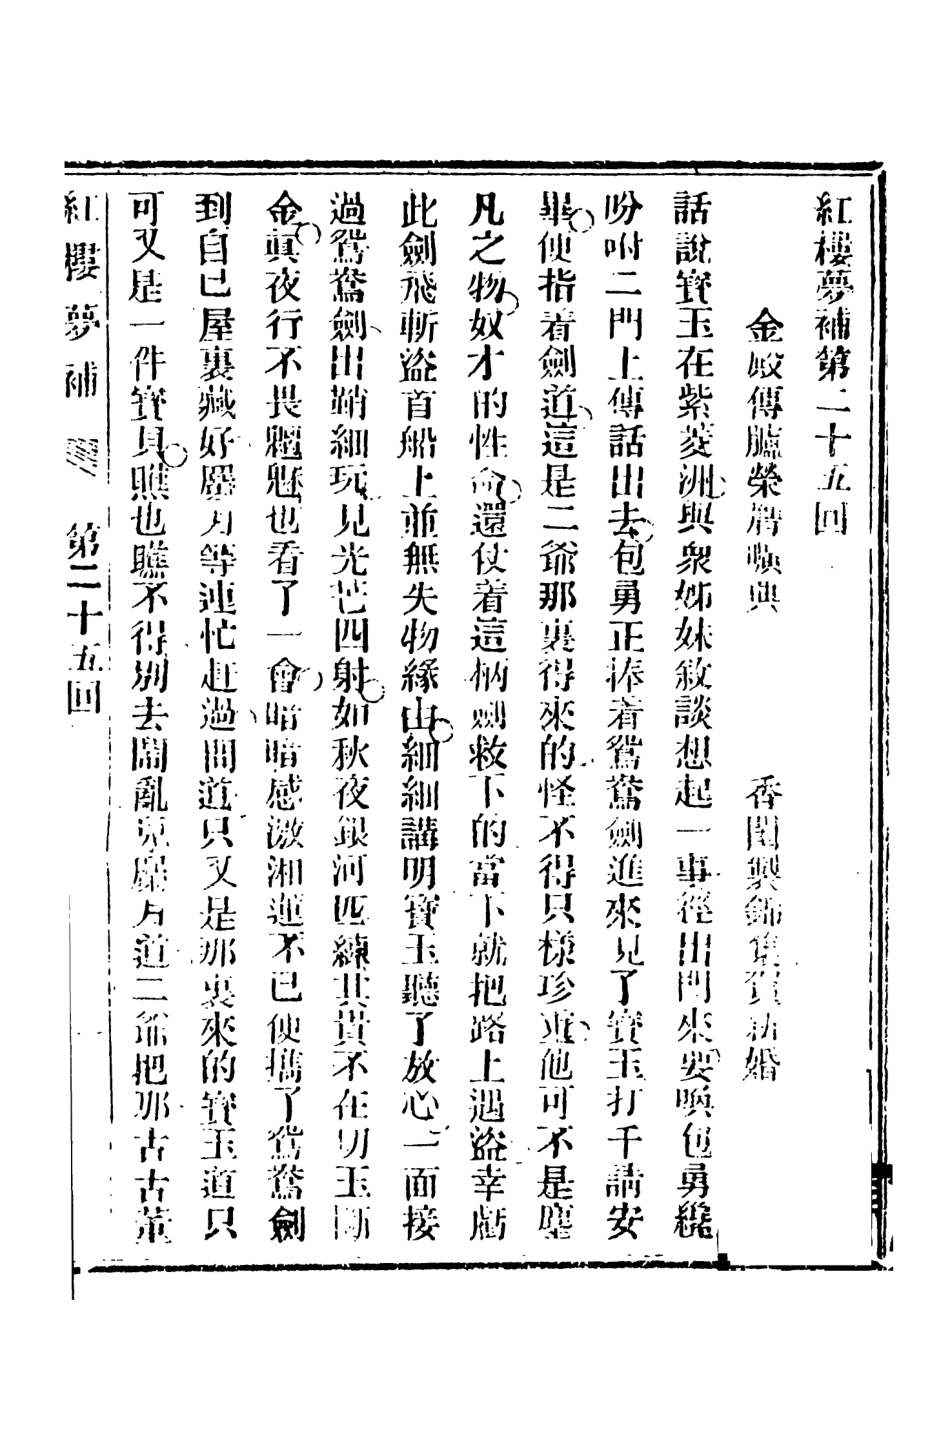 紅樓夢補第二十五回
金殿傳臚榮膺曠典　香閨製錦隻賀新婚
話說寳玉在紫菱洲與衆姊妹敘談想起一事徑出門來要喚包勇纔
吩咐二門上傳話出去包勇正捧着鴛鴦劍進來見了寳玉打千請安
畢便指着劍道這是二爺那裏得來的怪不得只樣珍重他可不是塵
凡之物奴才的性命還仗着這柄劍救下的當下就把路上遇盜幸虧
此劍飛斬盜首船上並無失物緣由細細講明寳玉聽了放心一面接
過鴛鴦劍出鞘細玩見光芒四射如秋夜銀河匹練其貴不在切玉斷
金眞夜行不畏魍魎也看了一會暗暗感激湘蓮不已便擕了鴛鴦劍
到自已屋裏藏好麝月等連忙赶過問道只又是那裏來的寳玉道只
可又是一件寳貝瞧也瞧不得別去鬧亂兒麝月道二爺把那古古董
紅樓夢補　第二十五回